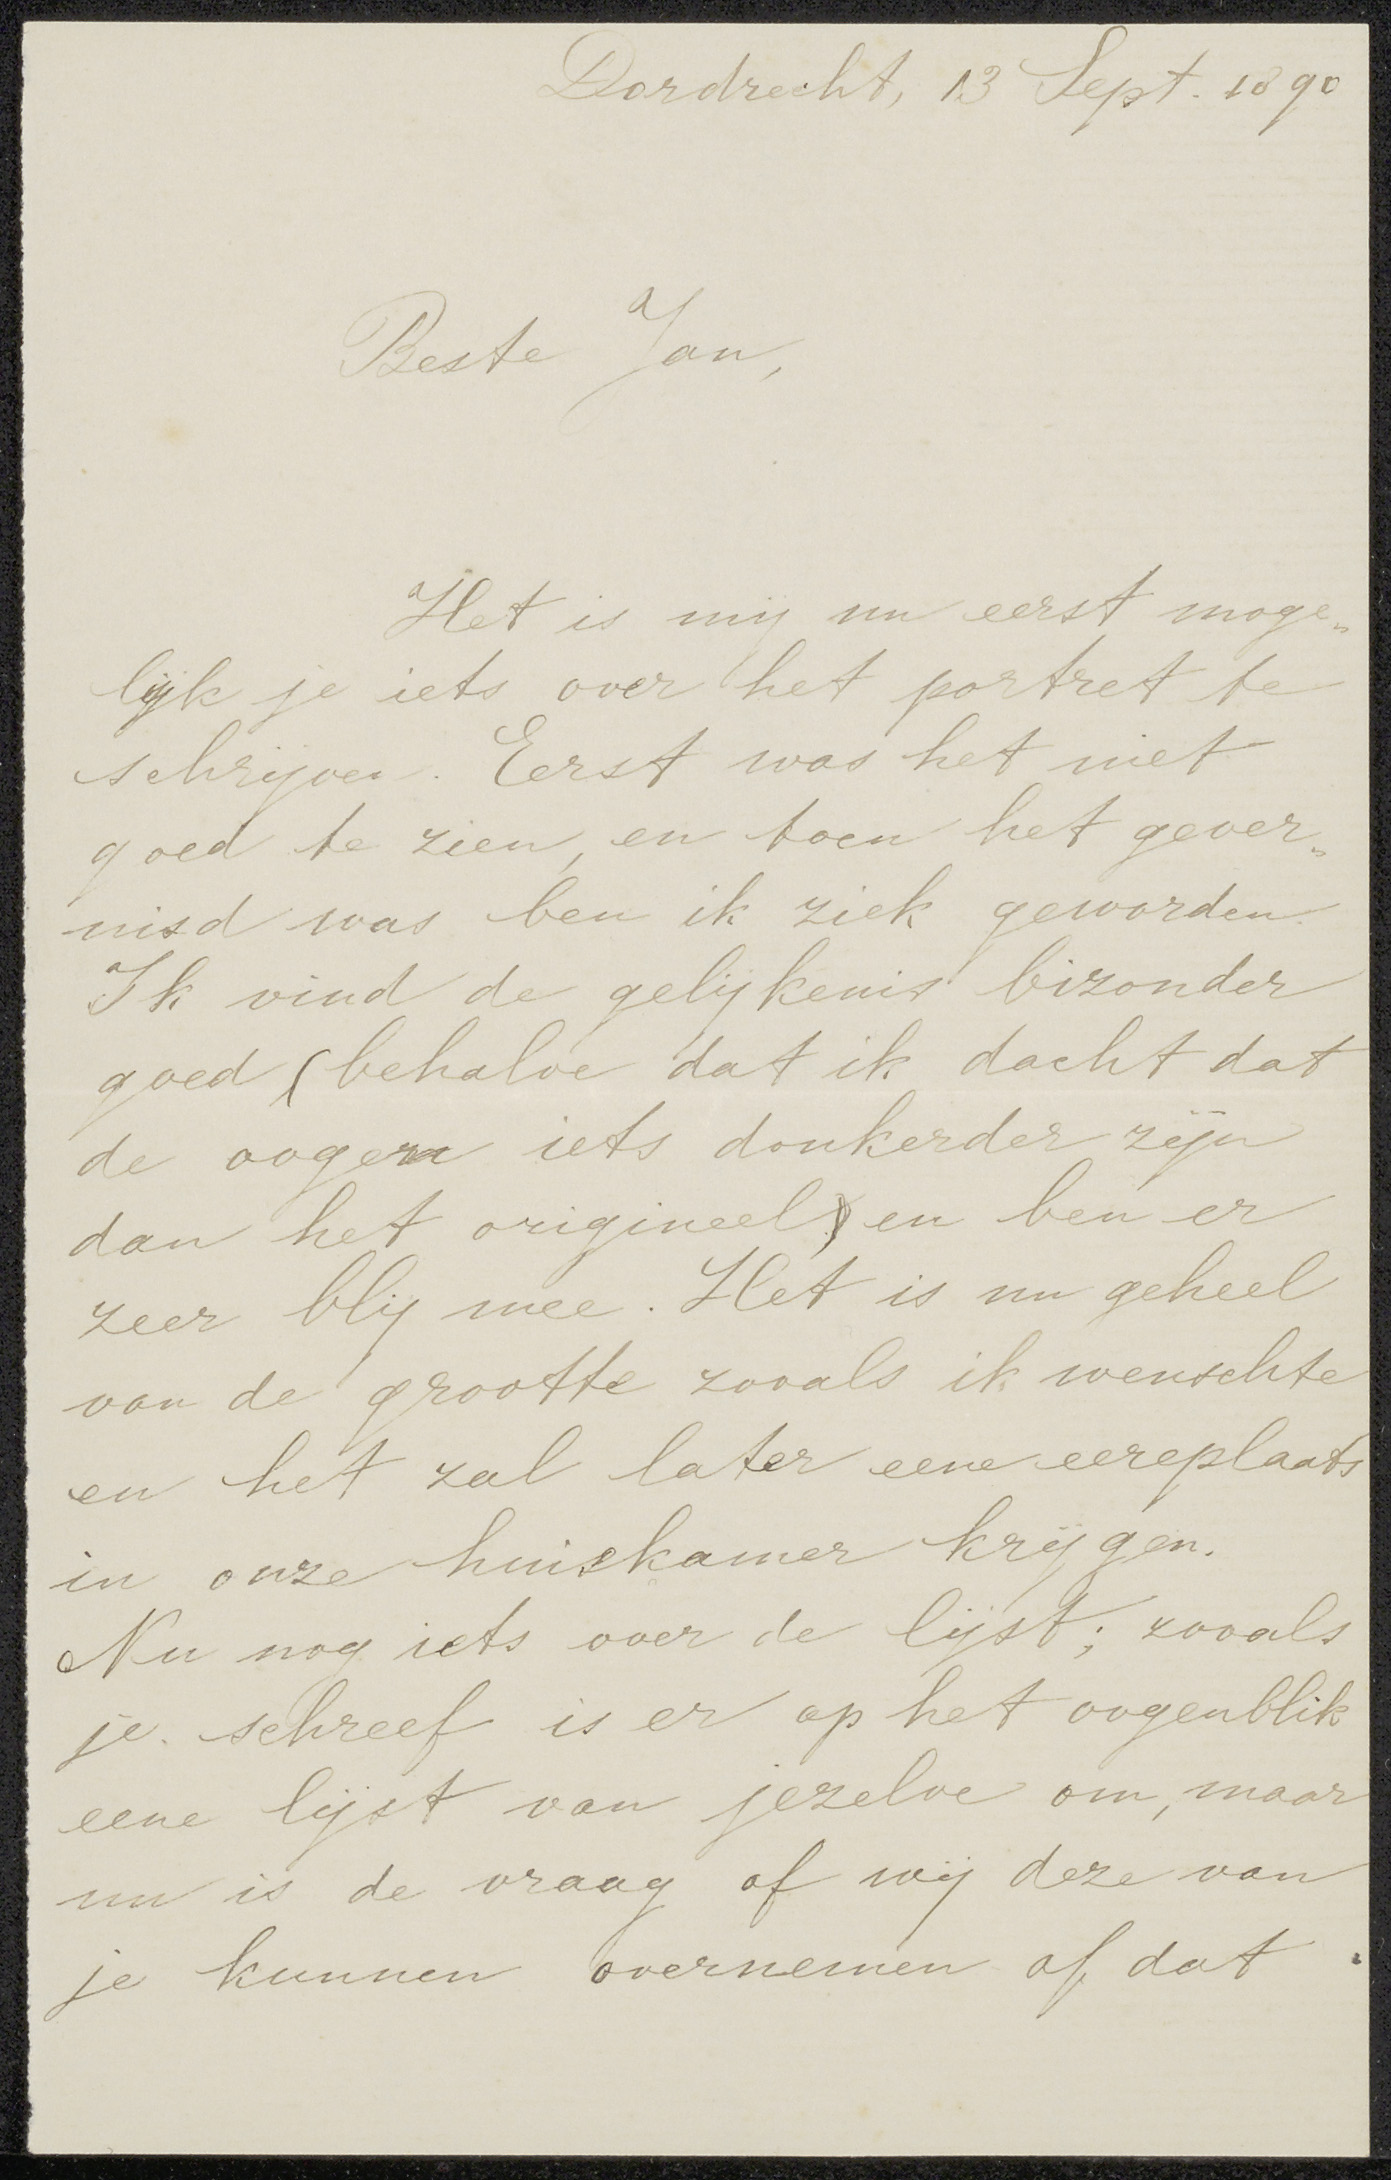 Dordrecht, 13 Sept. 1890
Beste Jan,
Het is mij nu eerst moge„
lijk je iets over het portret te
schrijven. Eerst was het niet
goed te zien, en toen het gever„
nisd was ben ik ziek geworden.
Ik vind de gelijkenis bizonder
goed (behalve dat ik dacht dat
de oogen iets donkerder zijn
dan het origineel) en ben er
zeer blij mee. Het is nu geheel
van de grootte zooals ik wenschte
en het zal later eene eereplaats
in onze huiskamer krijgen.
Nu nog iets over de lijst; zooals
je schreef is er op het oogenblik
eene lijst van jezelve om, maar
nu is de vraag of wij deze van
je kunnen overnemen of dat